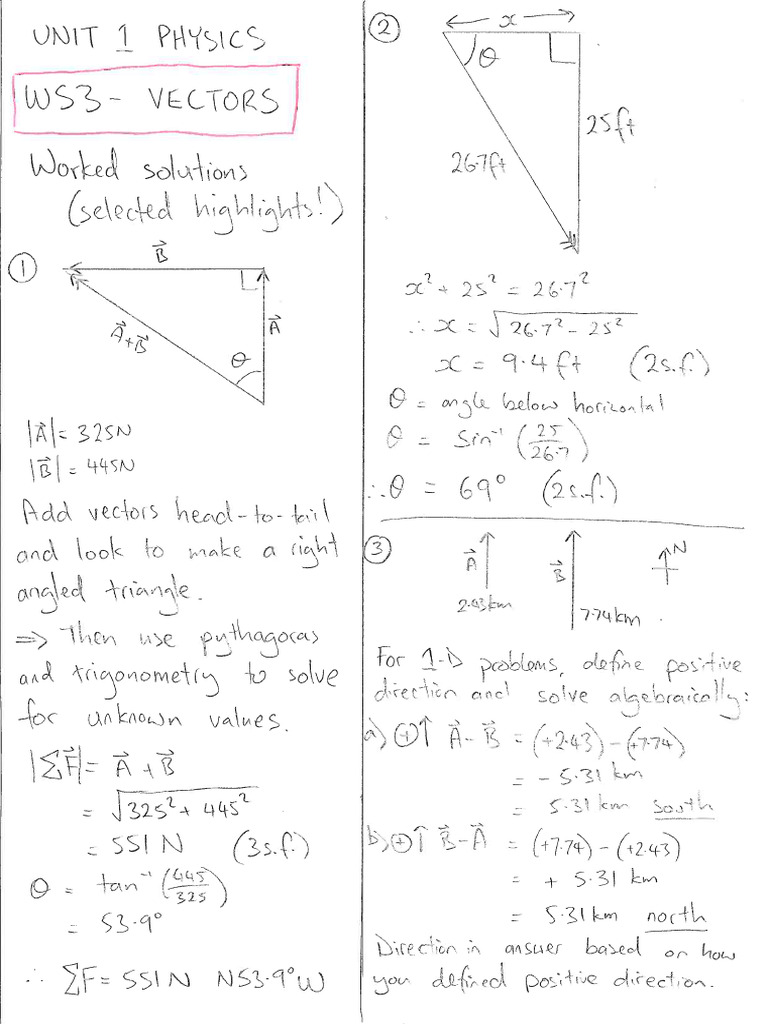 UNIT 1 PHYSICS
WS3 - VECTORS
Worked solutions
(selected highlights!)
①
B⃗
A⃗
A⃗+B⃗
θ
|A⃗| = 325N
|B⃗| = 445N
Add vectors head-to-tail
and look to make a right
angled triangle.
=> Then use pythagoras
and trigonometry to solve
for unknown values.
|ΣF⃗| = A⃗ + B⃗
= √(325² + 445²)
= 551 N (3s.f.)
θ = tan⁻¹ (445/325)
= 53.9°
∴ ΣF = 551N N53.9°W
②
x
θ
25ft
26.7ft
x² + 25² = 26.7²
∴ x = √(26.7² - 25²)
x = 9.4ft (2s.f.)
θ = angle below horizontal
θ = Sin⁻¹ (25/26.7)
∴ θ = 69° (2s.f.)
③
A⃗
2.43km
B⃗
7.74km
N
For 1-D problems, define positive
direction and solve algebraically:
a) ⊕↑ A⃗ - B⃗ = (+2.43) - (+7.74)
= - 5.31 km
= 5.31 km south
b) ⊕↑ B⃗ - A⃗ = (+7.74) - (+2.43)
= + 5.31 km
= 5.31 km north
Direction in answer based on how
you defined positive direction.